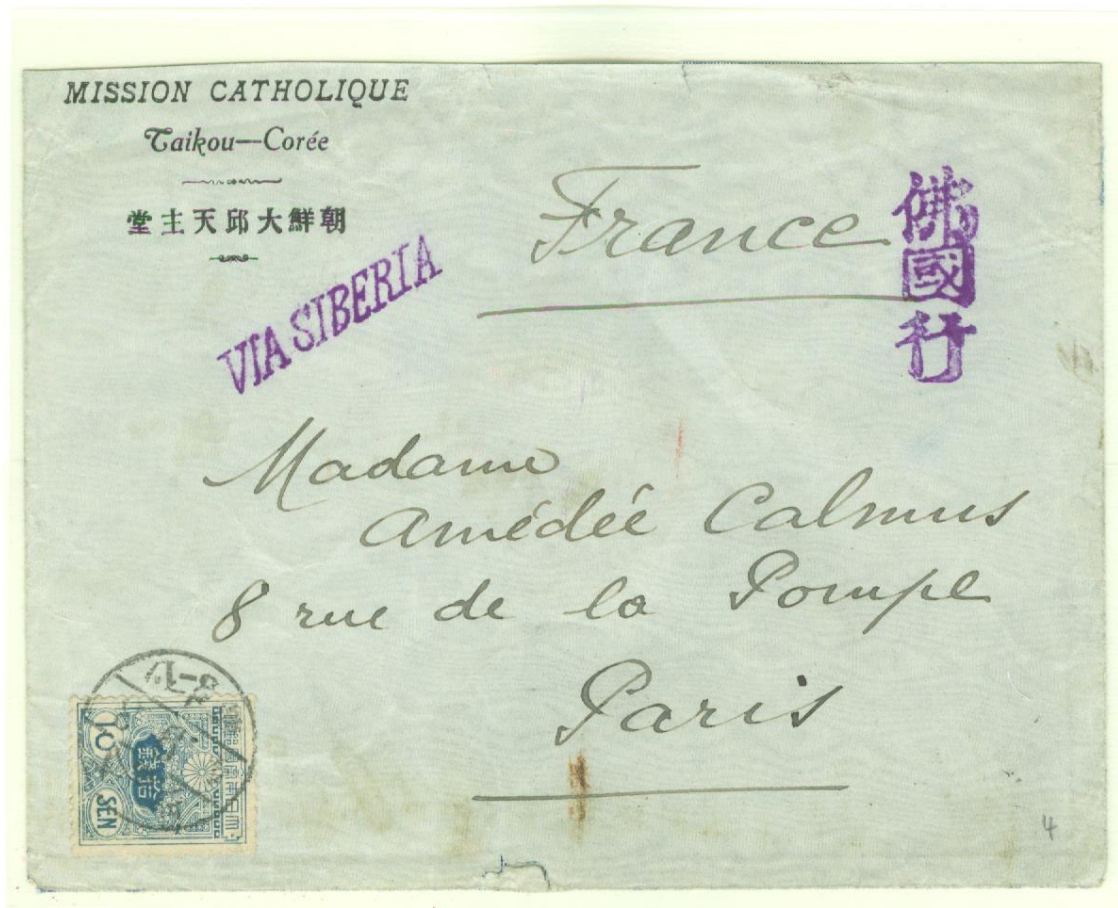 MISSION CATHOLIQUE
Taikou—Corée
堂主天邱大鮮朝
France
佛國行
VIA SIBERIA
Madame
Amédée Calmus
8 rue de la Pompe
Paris
10
SEN
銭拾
4